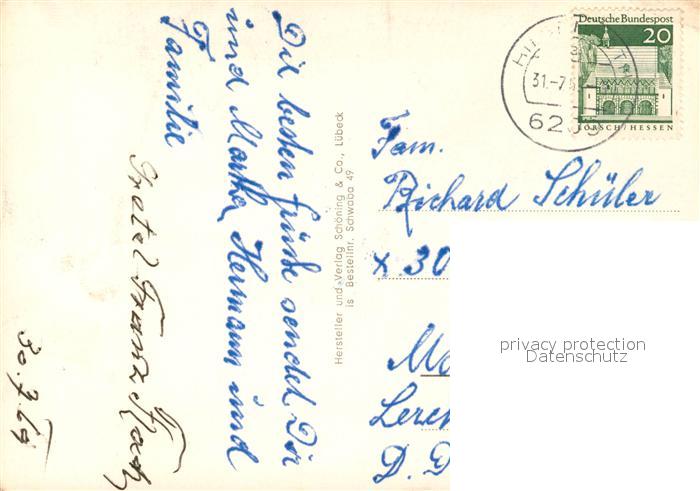 Die besten Grüße sendet Dir
und Martha, Hermann und
Familie
Gretel Franz
30.7.69
Hersteller und Verlag Schöning & Co., Lübeck
is Bestellnr. Schwaba 49
31.-7.6
62
Deutsche Bundespost
20
LORSCH/HESSEN
Fam.
Richard Schüler
x. 30
privacy protection
Datenschutz
D.